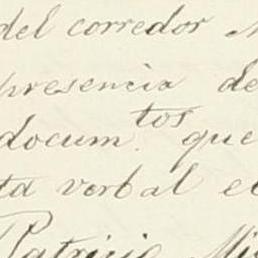 del corredor
presencia de
docum.tos que
ta verbal el
Patricio Mi